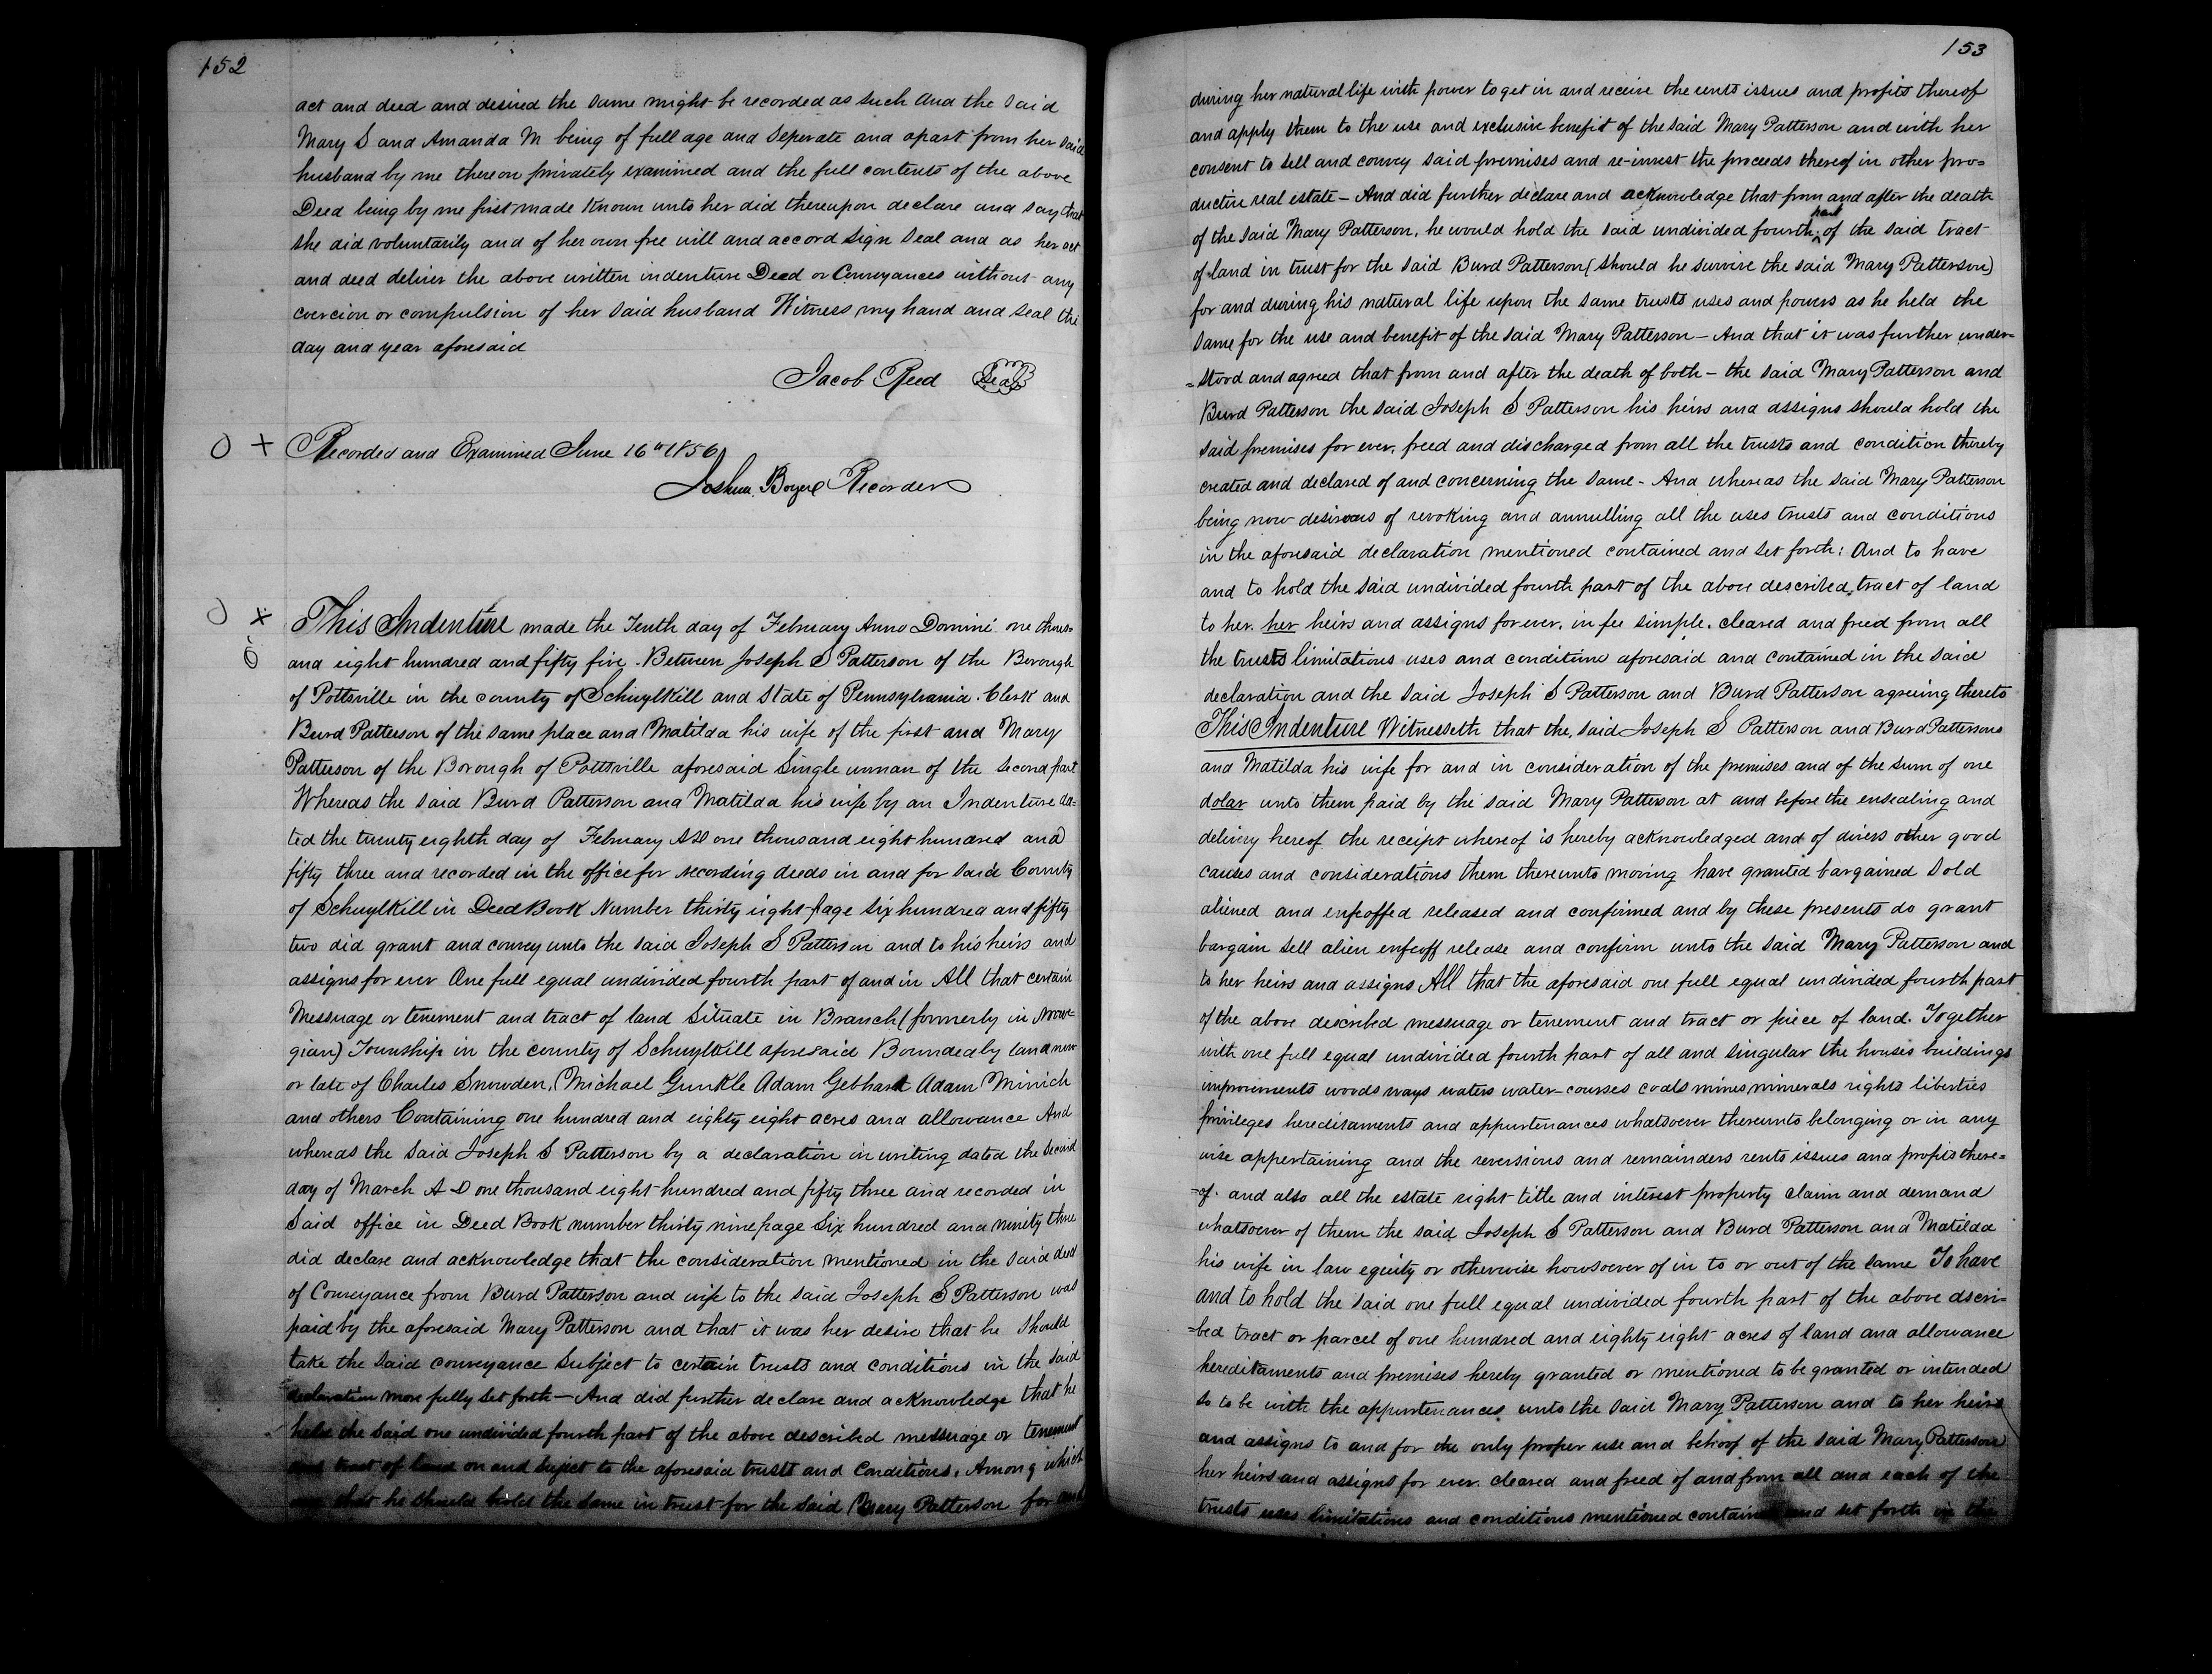 152
act and deed and desired the same might be recorded as such And the Said
Mary S and Amanda M being of full age and Seperate and apart from her said
husband by me thereon privately examined and the full contents of the above
Deed being by me first made Known unto her did thereupon declare and say that
she did voluntarily and of her own free will and accord Sign Seal and as her act
and deed deliver the above written indenture Deed or Conveyances without any
coercion or compulsion of her Said husband Witness my hand and Seal the
day and year aforesaid
Jacob Reed Seal
Recorded and Examined June 16th 1856
Joshua Boyer Recorder
This Indenture made the Tenth day of February Anno Domini one thous-
and eight hundred and fifty five. Between Joseph S Patterson of the Borough
of Pottsville in the county of Schuylkill and State of Pennsylvania. Clerk and
Burd Patterson of the same place and Matilda his wife of the first and Mary
Patterson of the Borough of Pottsville aforesaid Single woman of the Second part
Whereas the said Burd Patterson and Matilda his wife by an Indenture da-
ted the twenty eighth day of February AD one thousand eight hundred and
fifty three and recorded in the office for recording deeds in and for said County
of Schuylkill in Deed Book Number thirty eight page Six hundred and fifty
two did grant and convey unto the said Joseph S Patterson and to his heirs and
assigns for ever One full equal undivided fourth part of and in All that certain
Messuage or tenement and tract of land Situate in Branch (formerly in Norwe-
gian) Township in the county of Schuylkill aforesaid Bounded by land now
or late of Charles Snowden, Michael Gunkle Adam Gebhard Adam Minich
and others Containing one hundred and eighty eight acres and allowance And
whereas the said Joseph S Patterson by a declaration in writing dated the Second
day of March A D one thousand eight hundred and fifty three and recorded in
Said office in Deed Book number thirty nine page Six hundred and ninety three
did declare and acknowledge that the consideration mentioned in the said deed
of Conveyance from Burd Patterson and wife to the said Joseph S Patterson was
paid by the aforesaid Mary Patterson and that it was her desire that he Should
take the said conveyance Subject to certain trusts and conditions in the Said
declaration more fully set forth — And did further declare and acknowledge that he
held the said one undivided fourth part of the above described messuage or tenement
and tract of land on and Subject to the aforesaid trusts and Conditions. Among which
was that he should hold the Same in trust for the said Mary Patterson for and
153
during her natural life with power to get in and receive the rents issues and profits thereof
and apply them to the use and exclusive benefit of the said Mary Patterson and with her
consent to sell and convey said premises and re-invest the proceeds thereof in other pro-
ductive real estate — And did further declare and acknowledge that from and after the death
of the said Mary Patterson, he would hold the said undivided fourth part of the said tract
of land in trust for the said Burd Patterson (should he survive the said Mary Patterson)
for and during his natural life upon the same trusts uses and powers as he held the
same for the use and benefit of the said Mary Patterson — And that it was further under-
-stood and agreed that from and after the death of both — the said Mary Patterson and
Burd Patterson the said Joseph S Patterson his heirs and assigns should hold the
said premises for ever, freed and discharged from all the trusts and condition thereby
created and declared of and concerning the same — And whereas the said Mary Patterson
being now desirous of revoking and annulling all the uses trusts and conditions
in the aforesaid declaration mentioned contained and set forth: And to have
and to hold the said undivided fourth part of the above described tract of land
to her. her heirs and assigns for ever. in fee simple. cleared and freed from all
the trusts limitations uses and conditions aforesaid and contained in the said
declaration and the said Joseph S Patterson and Burd Patterson agreeing thereto
This Indenture Witnesseth that the said Joseph S Patterson and Burd Pattersons
and Matilda his wife for and in consideration of the premises and of the sum of one
dolar unto them paid by the said Mary Patterson at and before the ensealing and
delivery hereof the receipt whereof is hereby acknowledged and of divers other good
causes and considerations them thereunto moving have granted bargained Sold
aliened and enfeoffed released and confirmed and by these presents do grant
bargain sell alien enfeoff release and confirm unto the said Mary Patterson and
to her heirs and assigns All that the aforesaid one full equal undivided fourth part
of the above described messuage or tenement and tract or piece of land. Together
with one full equal undivided fourth part of all and singular the houses buildings
improvements woods ways waters water-courses coals mines minerals rights liberties
privileges hereditaments and appurtenances whatsoever thereunto belonging or in any
wise appertaining and the reversions and remainders rents issues and profits there-
-of. and also all the estate right title and interest property claim and demand
whatsoever of them the said Joseph S Patterson and Burd Patterson and Matilda
his wife in law equity or otherwise howsoever of in to or out of the same To have
and to hold the said one full equal undivided fourth part of the above descri-
-bed tract or parcel of one hundred and eighty eight acres of land and allowance
hereditaments and premises hereby granted or mentioned to be granted or intended
so to be with the appurtenances unto the said Mary Patterson and to her heirs
and assigns to and for the only proper use and behoof of the said Mary Patterson
her heirs and assigns for ever. cleared and freed of and from all and each of the
trusts uses limitations and conditions mentioned contained and set forth in the